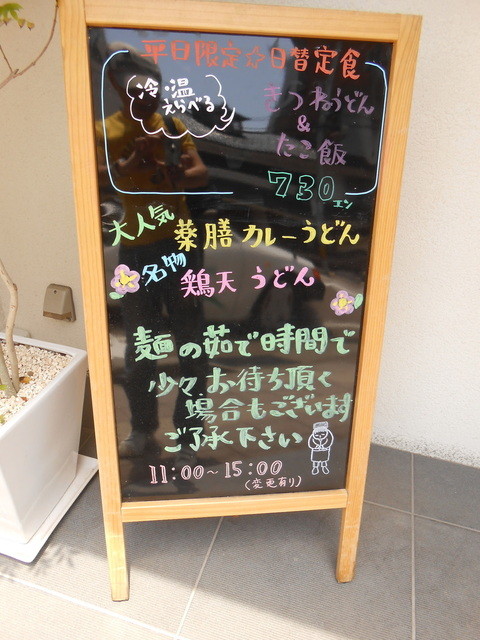 平日限定☆日替定食
冷・温
えらべる
きつねうどん
&
たこ飯
730エン
大人気
薬膳カレーうどん
名物
鶏天うどん
麺の茹で時間で
少々、お待ち頂く
場合もございます
ご了承下さい
11:00〜15:00
(変更有り)